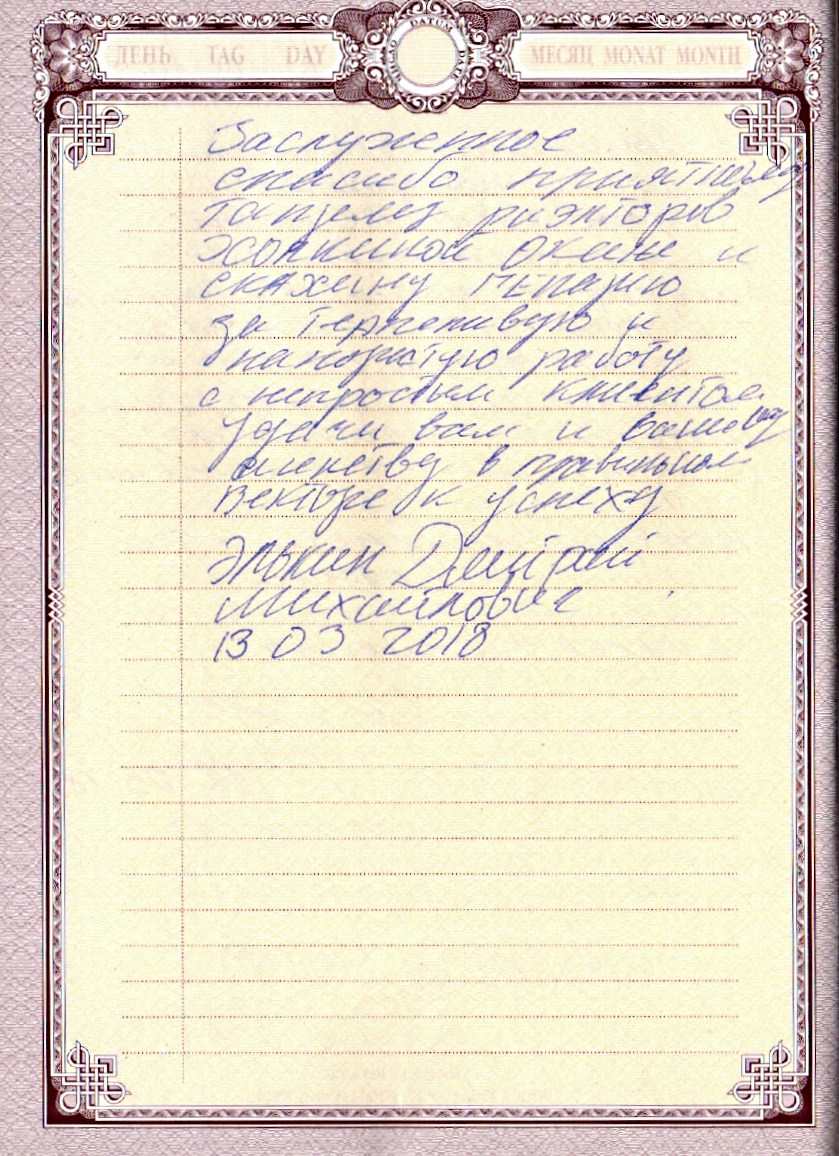 ДЕНЬ TAG DAY DATUM DATE МЕСЯЦ MONAT MONTH
Заслуженное
спасибо приятному
тандему риэлторов
Жолкиной Оксане и
Скахину Геннадию
за терпеливую и
напористую работу
с непростым клиентом
Удачи вам и вашему
агенству в правильном
векторе к успеху
Элькин Дмитрий
Михайлович
13 03 2018